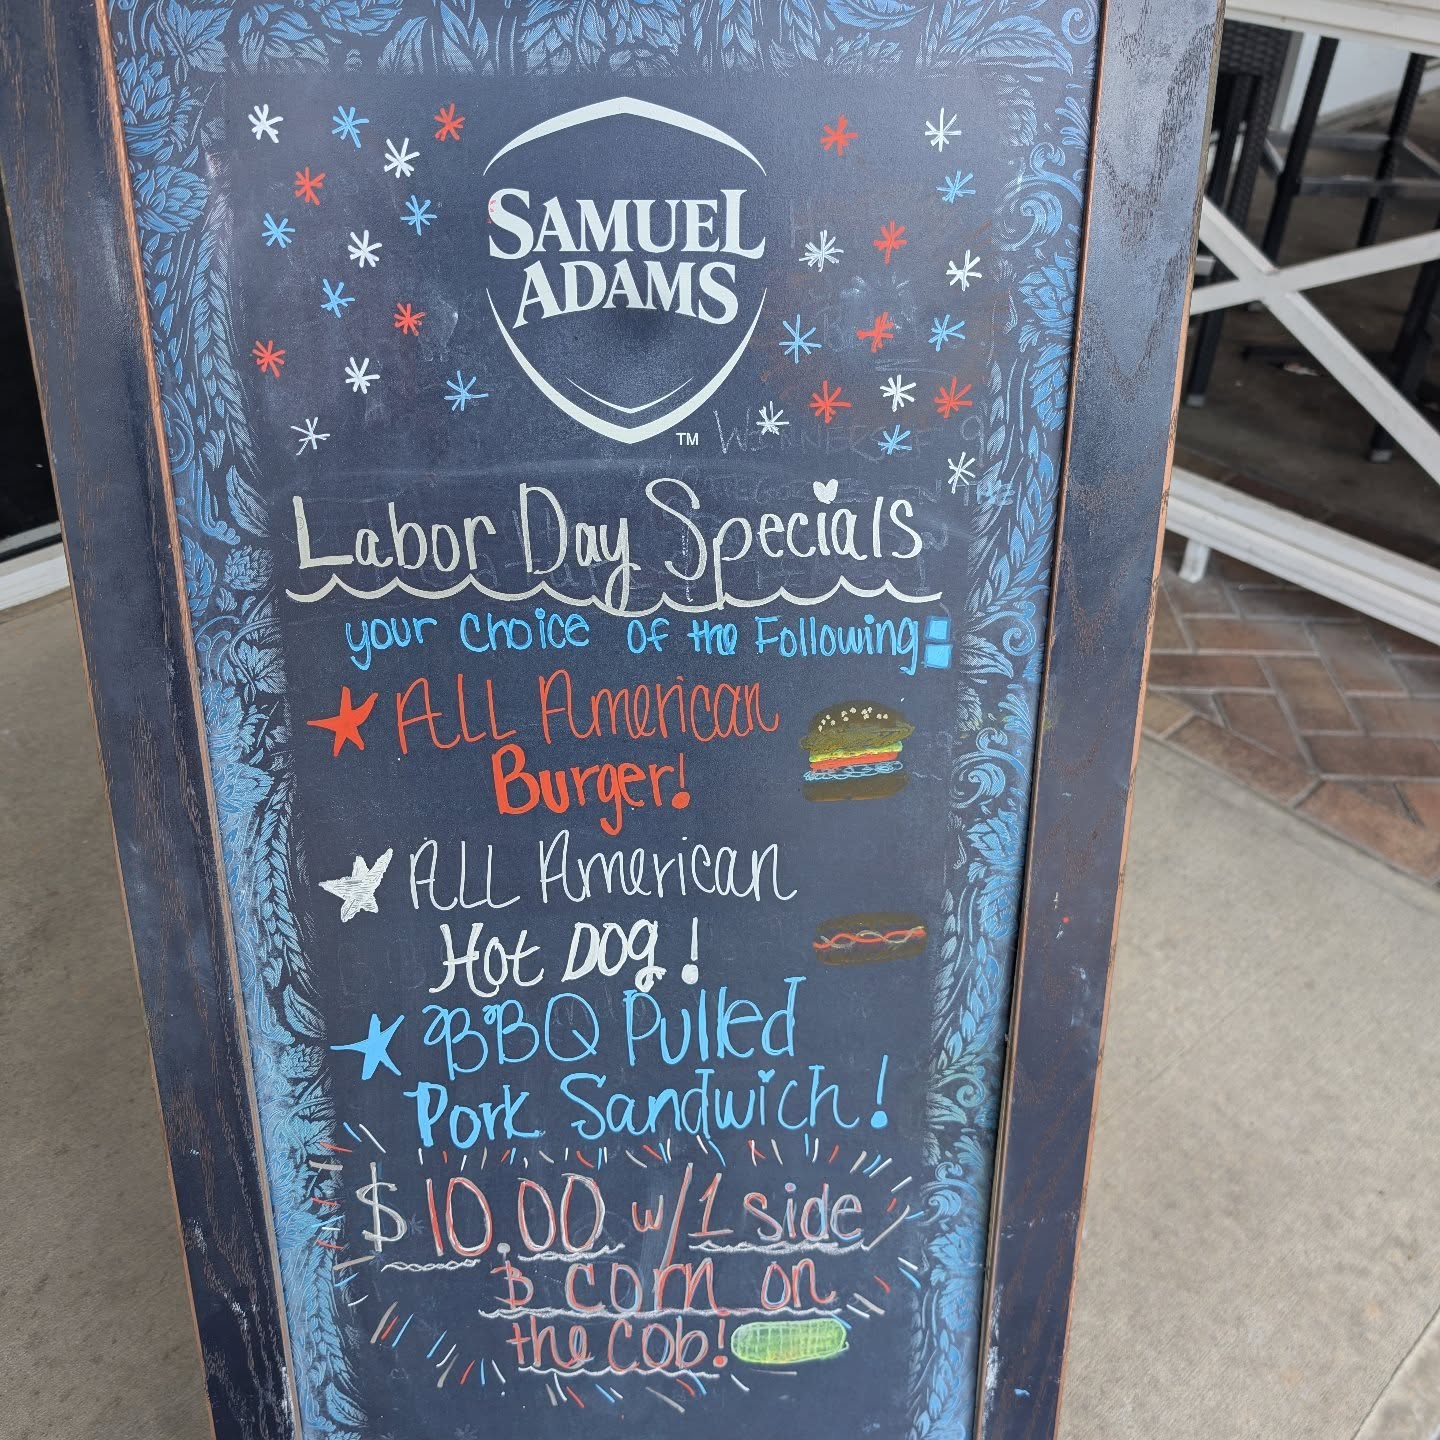 SAMUEL
ADAMS
TM
Labor Day Specials
your choice of the Following:
ALL American
Burger!
ALL American
Hot Dog!
BBQ Pulled
Pork Sandwich!
$10.00 w/1 side
& corn on
the cob!